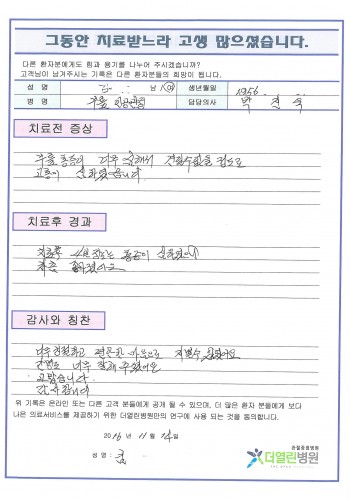 그동안 치료받느라 고생 많으셨습니다.
다른 환자분에게도 힘과 용기를 나누어 주시겠습니까?
고객님이 남겨주시는 기록은 다른 환자분들의 희망이 됩니다.
성 명 남 / 여 생년월일 1956
병 명 무릎 인공관절 담당의사 박
치료전 증상
무릎 통증이 너무 심해서 걸을수없을 정도로
고통이 심하였습니다
치료후 경과
치료후 4일 정도는 통증이 심하였으나
차츰 좋아졌어요
감사와 칭찬
너무 친절하고 편안한 마음으로 지낼수 있었어요
수술도 너무 잘해 주셨어요
고맙습니다
감사합니다
위 기록은 온라인 또는 다른 고객 분들에게 공개 될 수 있으며, 더 많은 환자 분들에게 보다
나은 의료서비스를 제공하기 위한 더열린병원만의 연구에 사용 되는 것을 동의합니다.
2016 년 11 월 14 일
성 명 :
관절중점병원
더열린병원